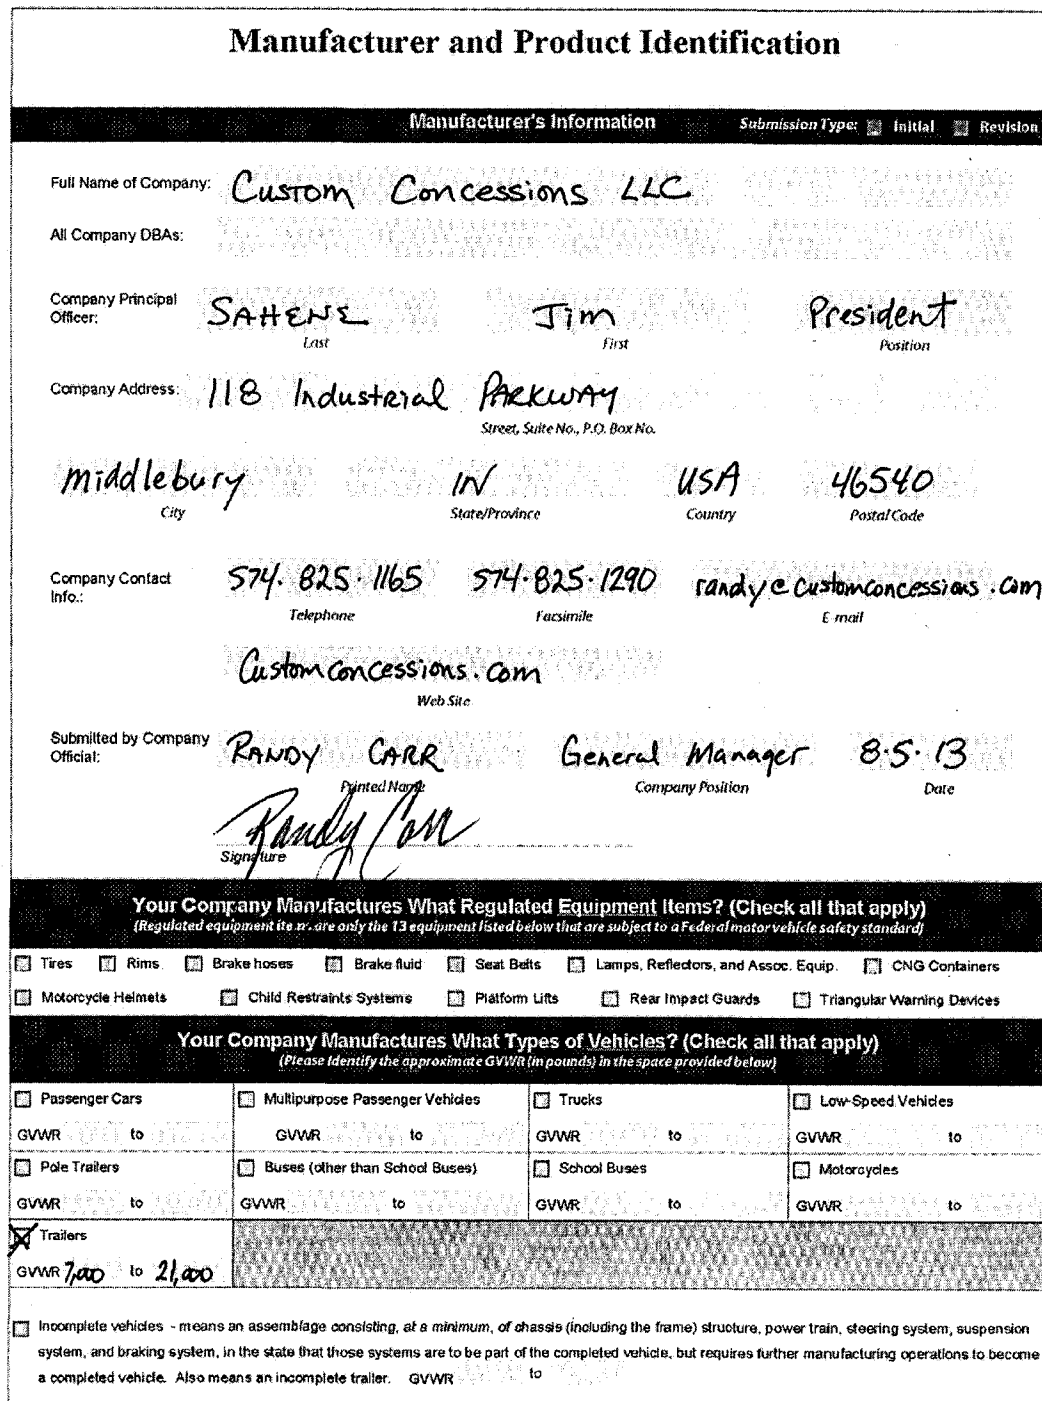 Manufacturer and Product Identification
Manufacturer's Information Submission Type: Initial Revision
Full Name of Company: Custom Concessions LLC
All Company DBAs:
Company Principal Officer: SAHENE Jim President
Last First Position
Company Address: 118 Industrial PARKWAY
Street, Suite No., P.O. Box No.
Middlebury IN USA 46540
City State/Province Country Postal Code
Company Contact Info.: 574.825.1165 574.825.1290 randy@customconcessions.com
Telephone Facsimile E-mail
Customconcessions.com
Web Site
Submitted by Company Official: RANDY CARR General Manager 8.5.13
Printed Name Company Position Date
Randy Carr
Signature
Your Company Manufactures What Regulated Equipment Items? (Check all that apply)
(Regulated equipment items are only the 13 equipment listed below that are subject to a Federal motor vehicle safety standard)
Tires Rims Brake hoses Brake fluid Seat Belts Lamps, Reflectors, and Assoc. Equip. CNG Containers
Motorcycle Helmets Child Restraints Systems Platform Lifts Rear Impact Guards Triangular Warning Devices
Your Company Manufactures What Types of Vehicles? (Check all that apply)
(Please Identify the approximate GVWR (in pounds) in the space provided below)
Passenger Cars Multipurpose Passenger Vehicles Trucks Low-Speed Vehicles
GVWR to GVWR to GVWR to GVWR to
Pole Trailers Buses (other than School Buses) School Buses Motorcycles
GVWR to GVWR to GVWR to GVWR to
Trailers
GVWR 7,000 to 21,000
Incomplete vehicles - means an assemblage consisting, at a minimum, of chassis (including the frame) structure, power train, steering system, suspension
system, and braking system, in the state that those systems are to be part of the completed vehicle, but requires further manufacturing operations to become
a completed vehicle. Also means an incomplete trailer. GVWR to